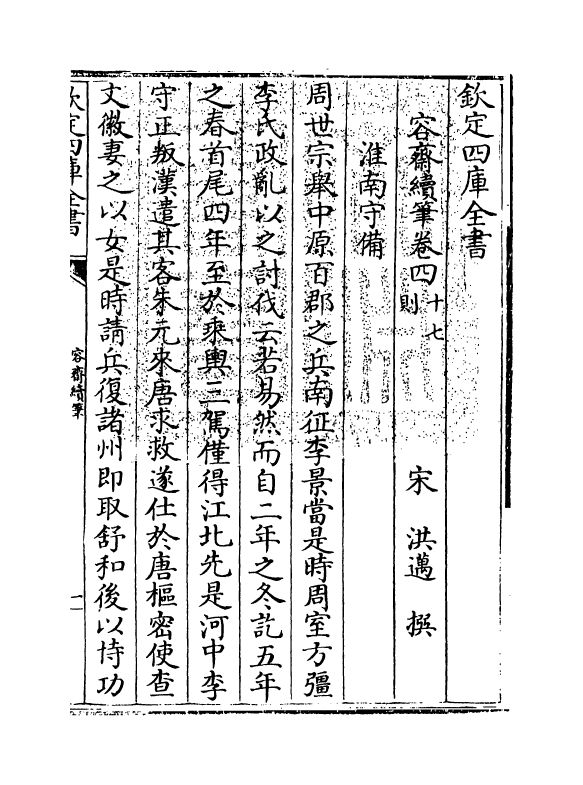 欽定四庫全書
容齋續筆卷四 十七則
宋 洪邁 撰
淮南守備
周世宗舉中原百郡之兵南征李景當是時周室方彊
李氏政亂以之討伐云若易然而自二年之冬訖五年
之春首尾四年至於乘輿三駕僅得江北先是河中李
守正叛漢遣其客朱元來唐求救遂仕於唐樞密使查
文徽妻之以女是時請兵復諸州即取舒和後以恃功
欽定四庫全書
容齋續筆